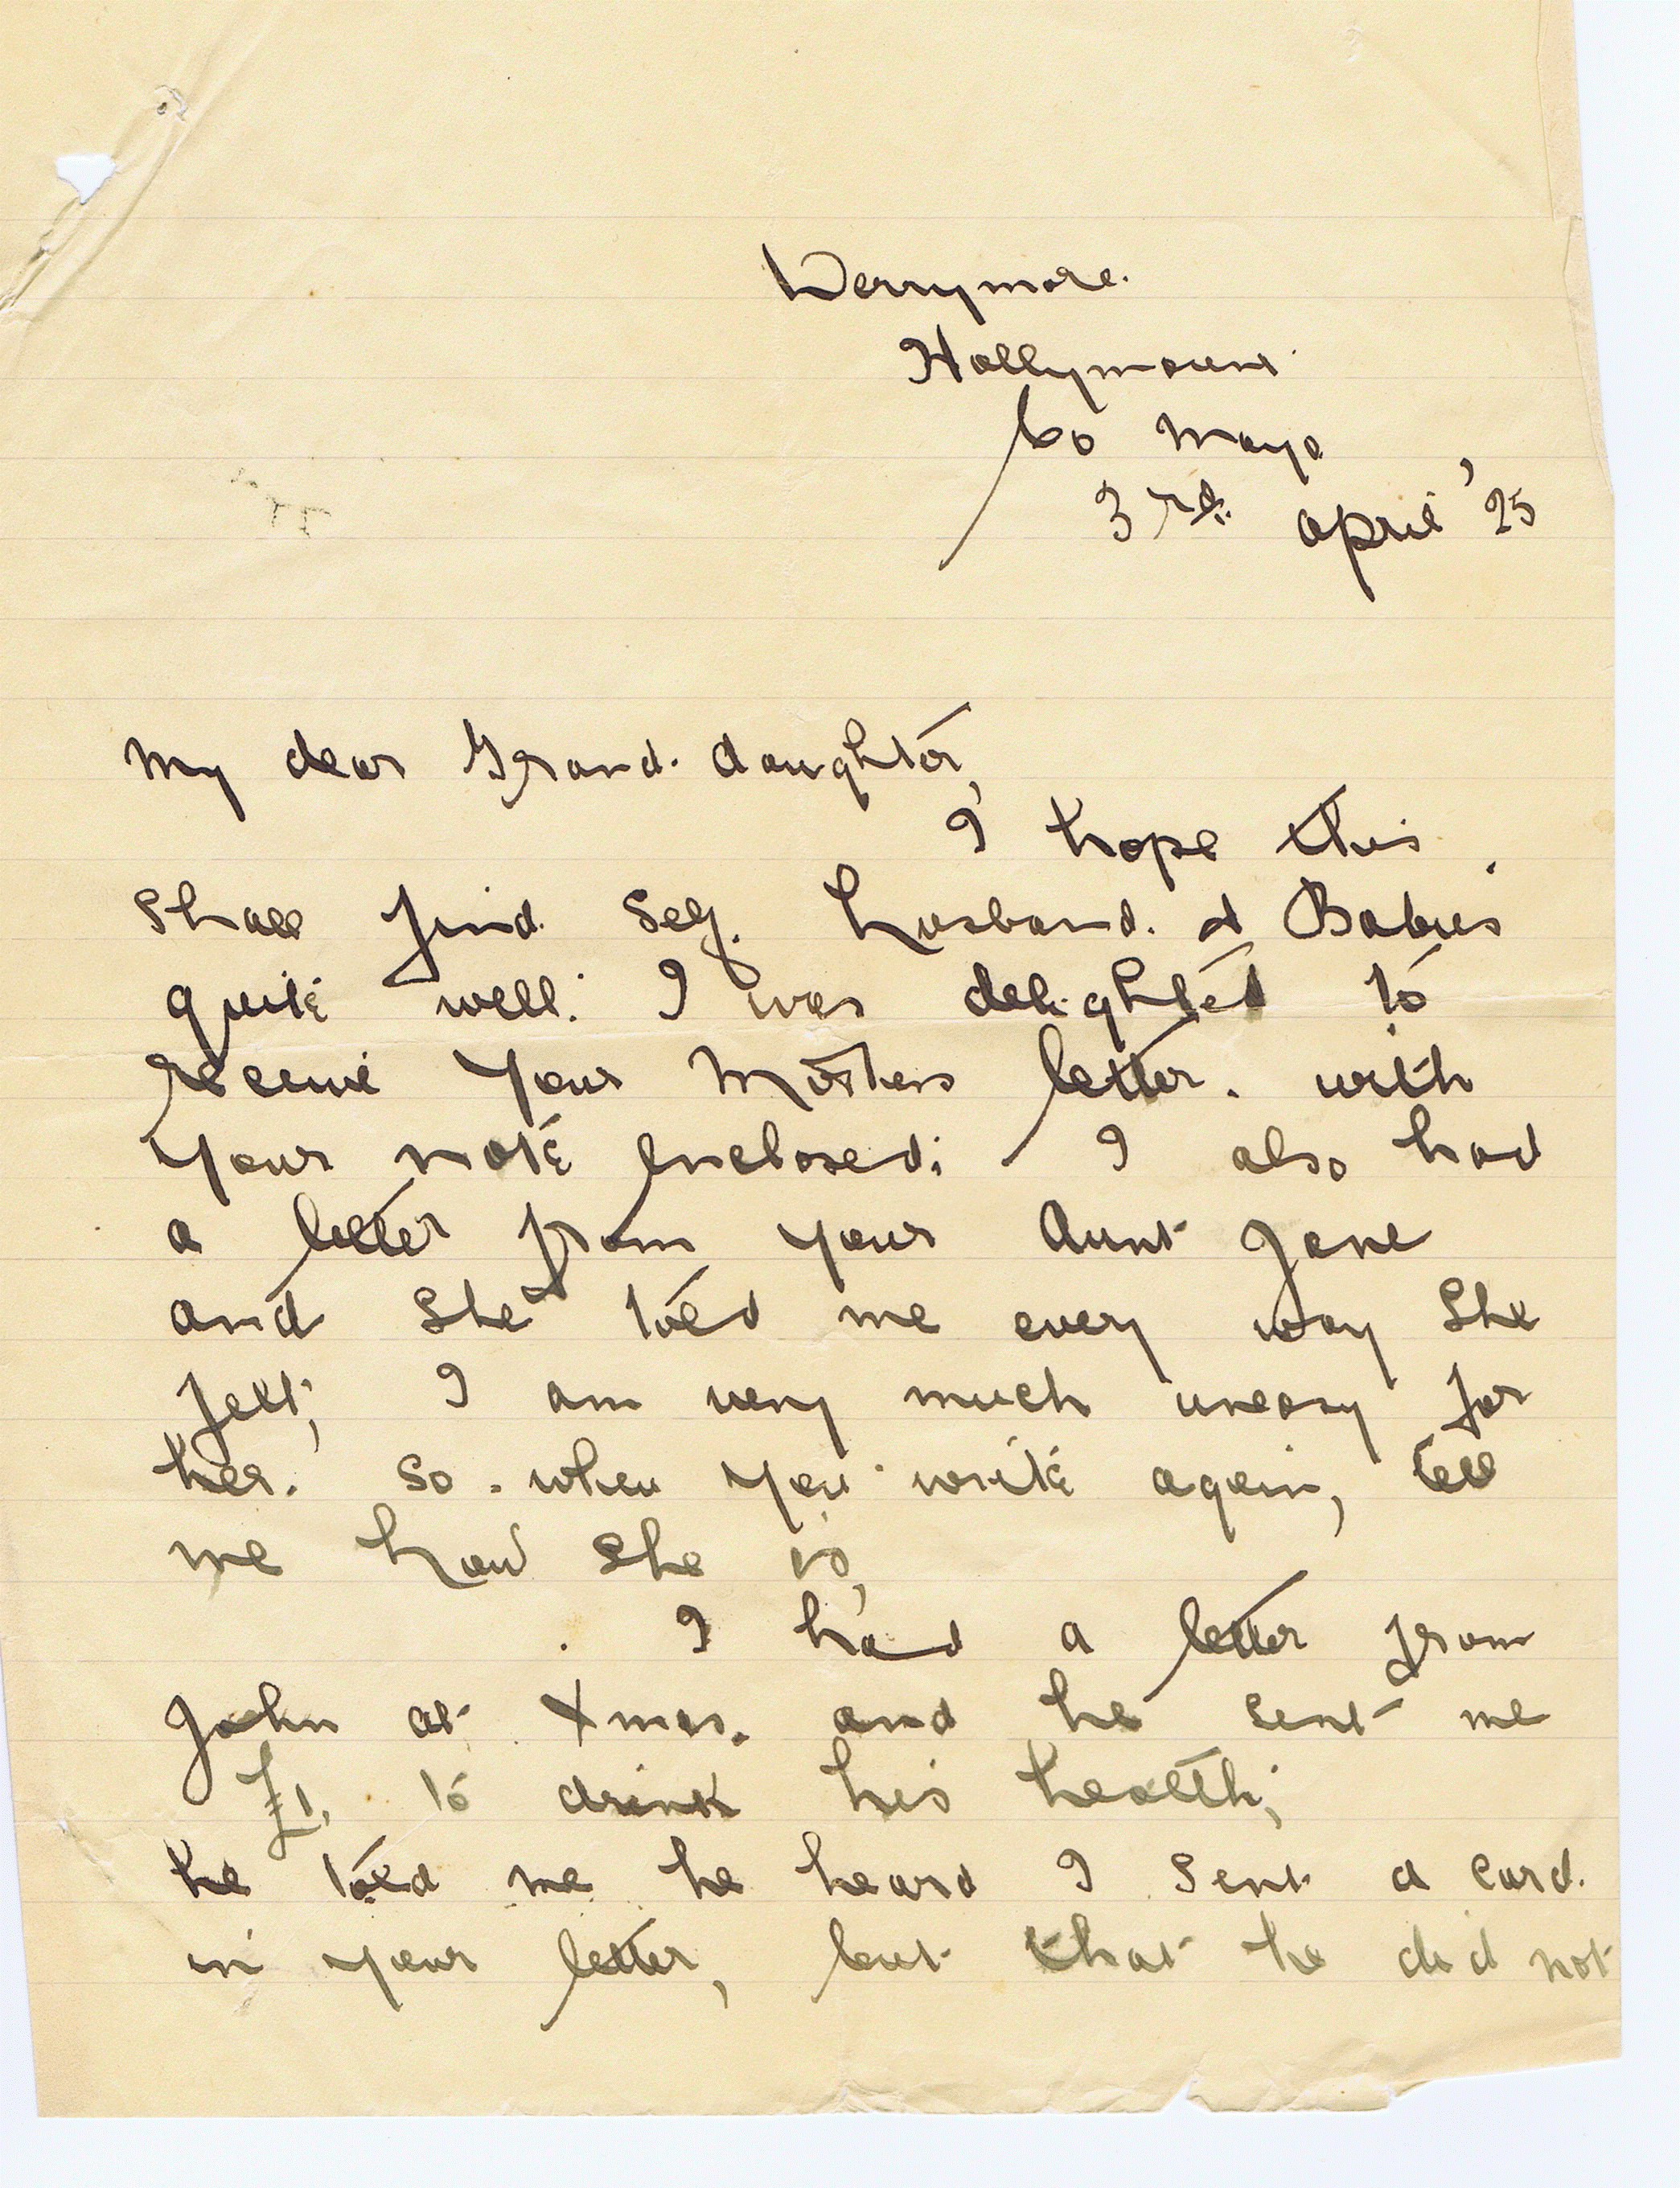 Derrymore.
Hollymount
Co Mayo
3rd. april '25
My dear Grand. daughter,
I hope this
shall find self. husband. & Babies
quite well. I was delighted to
receive your Mothers letter. with
your note Enclosed; I also had
a letter from your Aunt Jane
and she told me every way she
felt; I am very much uneasy for
her. So. when you write again, tell
me how she is,
I had a letter from
John at Xmas. and he sent me
£1. to drink his health;
he told me he heard I sent a card.
in your letter, but that he did not